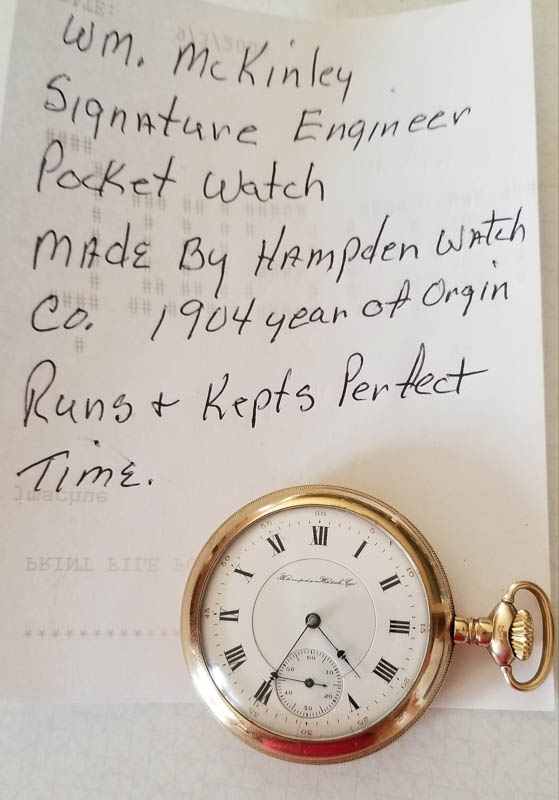 Wm. McKinley
Signature Engineer
Pocket Watch
Made By Hampden Watch
Co. 1904 year of Orgin
Runs + Kepts Perfect
Time.
jmschue
PRINT FILE
*****************
Hampden Watch Co.
XII
I
II
III
IIII
V
VII
VIII
IX
X
XI
60
15
25
30
35
45
55
60
10
20
30
40
50